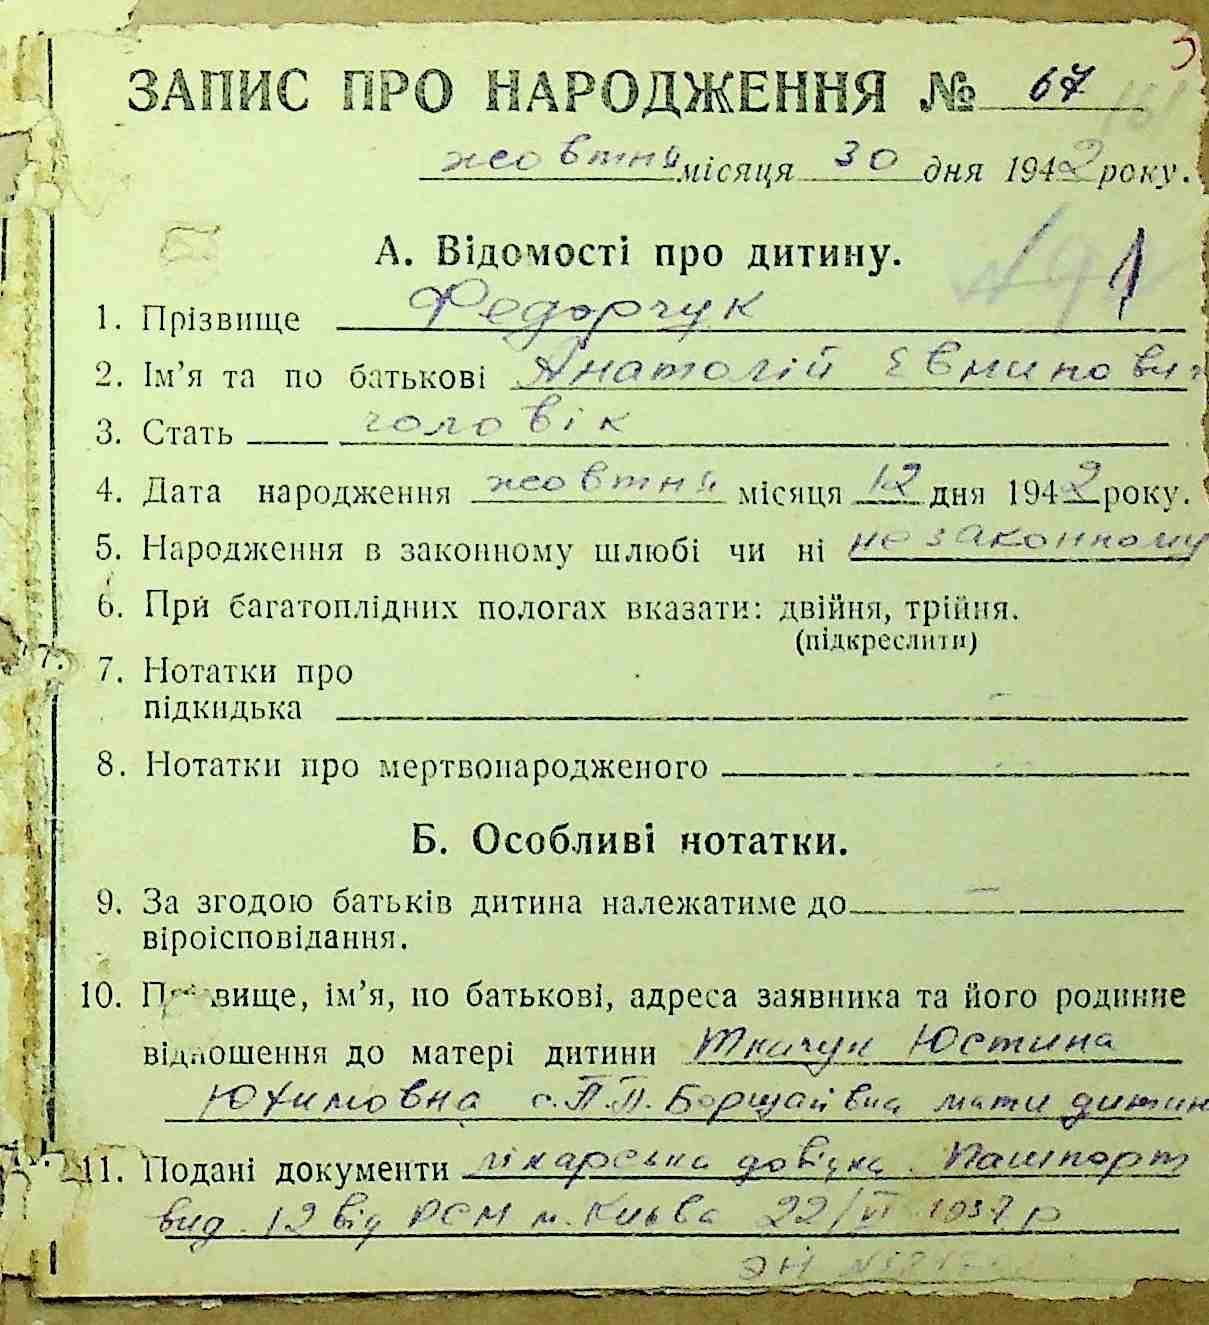 ЗАПИС ПРО НАРОДЖЕННЯ № 67
жовтня місяця 30 дня 1942 року.
А. Відомості про дитину.
1
1. Прізвище Федорчук
2. Ім’я та по батькові Анатолій
3. Стать чоловік
4. Дата народження жовтня місяця 12 дня 1942 року.
5. Народження в законному шлюбі чи ні незаконному
6. При багатоплідних пологах вказати: двійня, трійня.
(підкреслити)
7. Нотатки про
підкидька
8. Нотатки про мертвонародженого
Б. Особливі нотатки.
9. За згодою батьків дитина належатиме до
віроісповідання.
10. Прізвище, ім’я, по батькові, адреса заявника та його родинне
відношення до матері дитини Ткачук Юстина
Юхимовна с. П.П. Борщаївка мати дитин
11. Подані документи лікарська довідка. Пашпорт
вид. 12 від РСМ м. Києва 22/VI 1937 р